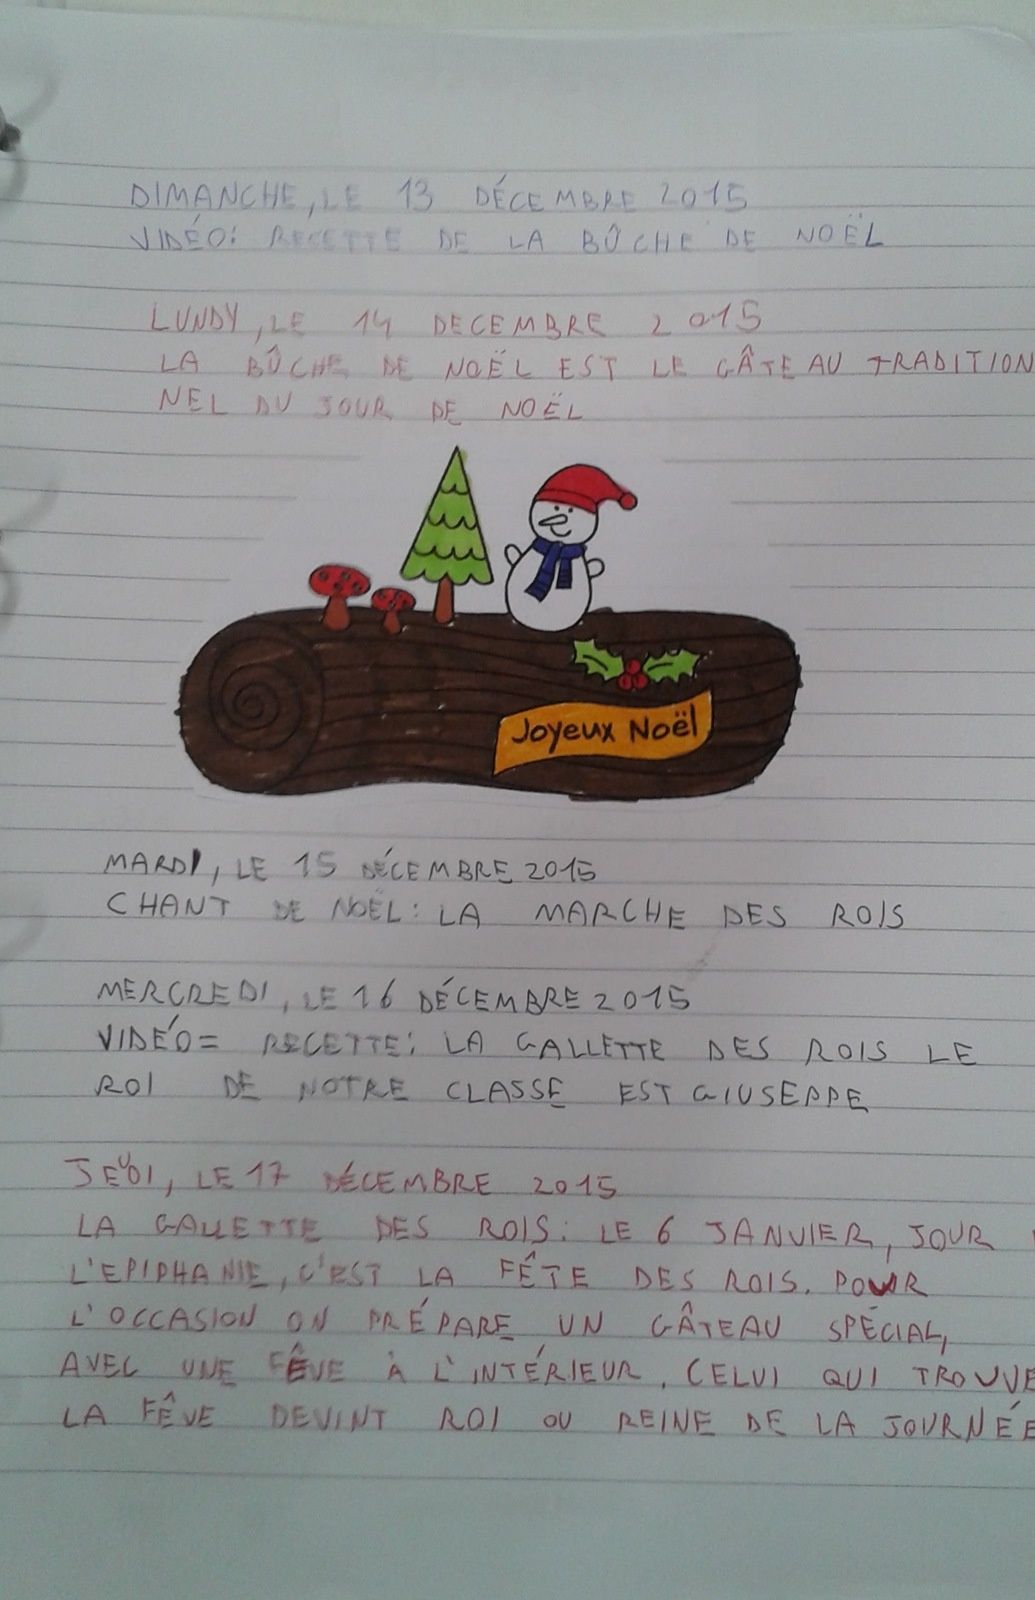 DIMANCHE, LE 13 DÉCEMBRE 2015
VIDÉO: RECETTE DE LA BÛCHE DE NOËL
LUNDY, LE 14 DECEMBRE 2015
LA BÛCHE DE NOËL EST LE GÂTEAU TRADITION
NEL DU JOUR DE NOËL
Joyeux Noël
MARDI, LE 15 DÉCEMBRE 2015
CHANT DE NOËL: LA MARCHE DES ROIS
MERCREDI, LE 16 DÉCEMBRE 2015
VIDÉO= RECETTE: LA GALLETTE DES ROIS LE
ROI DE NOTRE CLASSE EST GIUSEPPE
JEUDI, LE 17 DÉCEMBRE 2015
LA GALLETTE DES ROIS: LE 6 JANVIER, JOUR
L'EPIPHANIE, C'EST LA FÊTE DES ROIS. POUR
L'OCCASION ON PRÉPARE UN GÂTEAU SPÉCIAL,
AVEC UNE FÊVE À L'INTÉRIEUR. CELUI QUI TROUVE
LA FÊVE DEVINT ROI OU REINE DE LA JOURNÉE